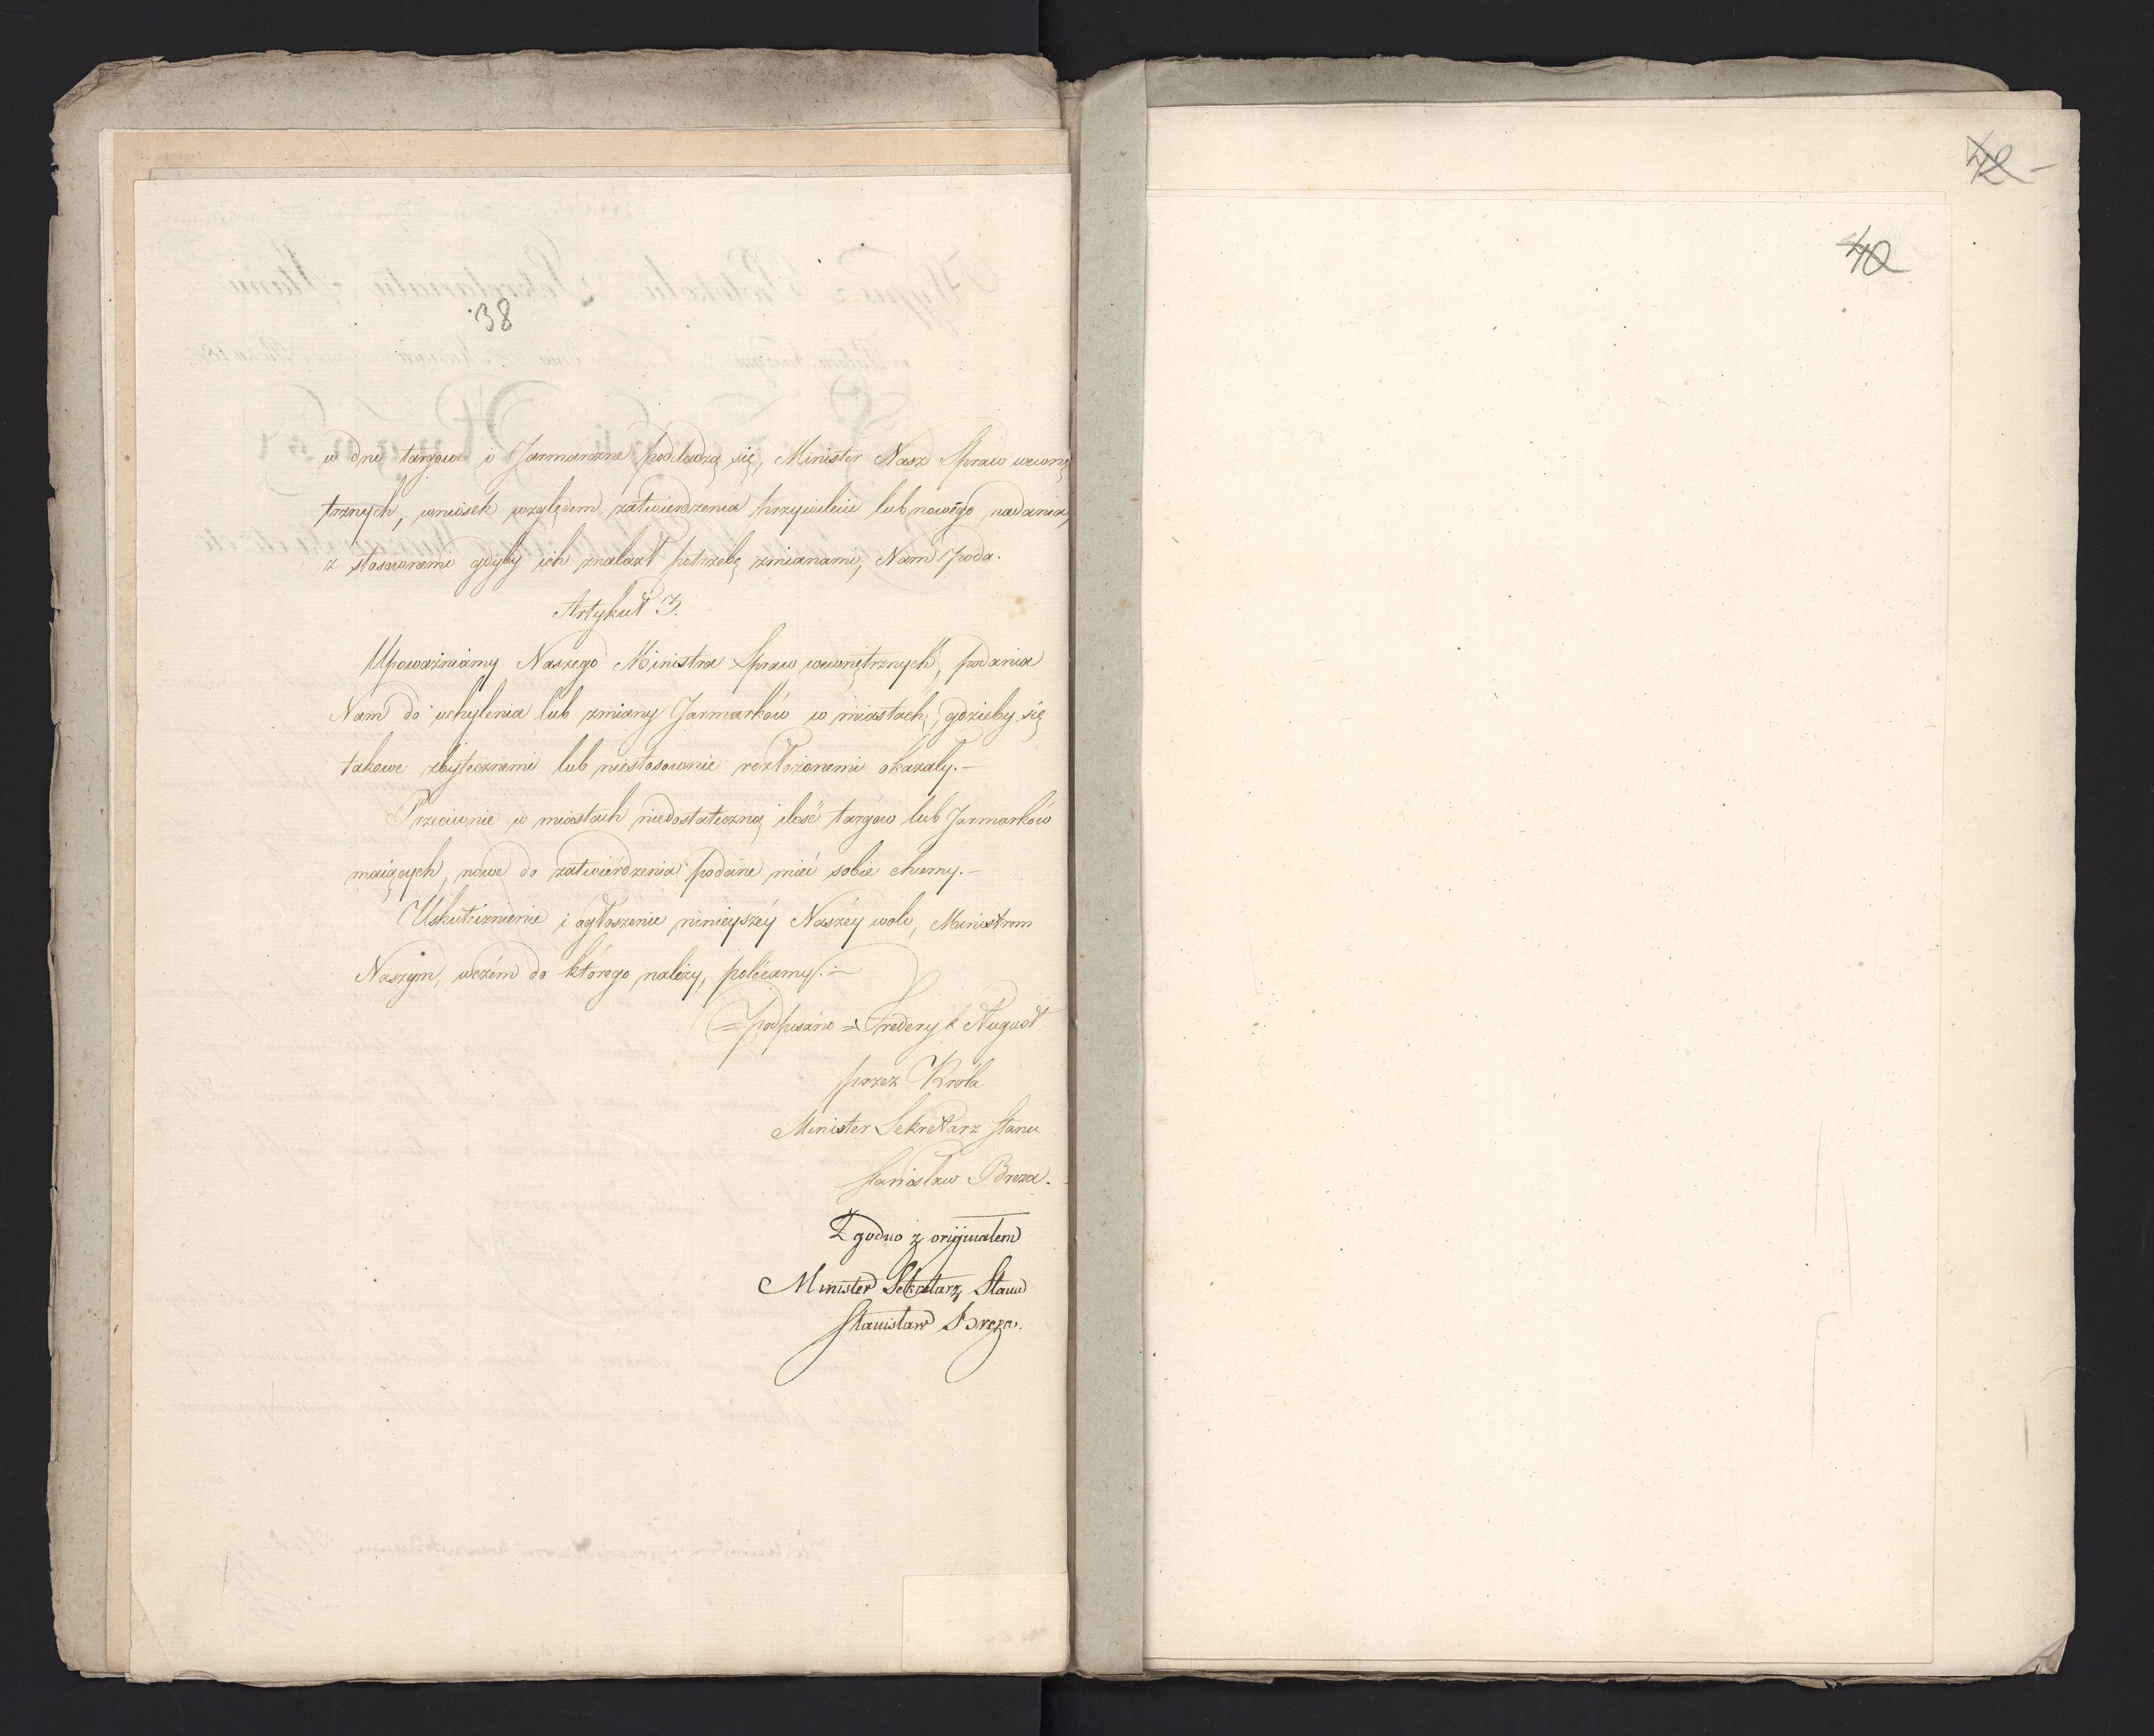 38
w dni targowe i Jarmarczne podchodzą się, Minister Nasz Spraw wewnę
trznych, wniosek względem zatwierdzenia przywileiu lub nowego nadania,
z stosownemi gdyby ich znalazł potrzebę zmianami, Nam poda.
Artykuł 3.
Upoważniamy Naszego Ministra Spraw wewnętrznych, podania
Nam do uchylenia lub zmiany Jarmarków w miastach, gdzieby się
takowe zbytecznemi lub niestosownie rozłożonemi okazały.—
Przeciwnie w miastach niedostateczną ilość targów lub Jarmarków
maiących, nowe do zatwierdzenia podane mieć sobie chcemy.—
Uskutecznienie i ogłoszenie ninieyszéy Naszéy woli, Ministrom
Naszym, wczém do którego należy, polecamy.—
= podpisano = Frederyk August
przez Króla
Minister Sekretarz Stanu
Stanisław Breza.
Zgodno z oryginałem
Minister Sekretarz Stanu
Stanisław Breza.
42 -
40